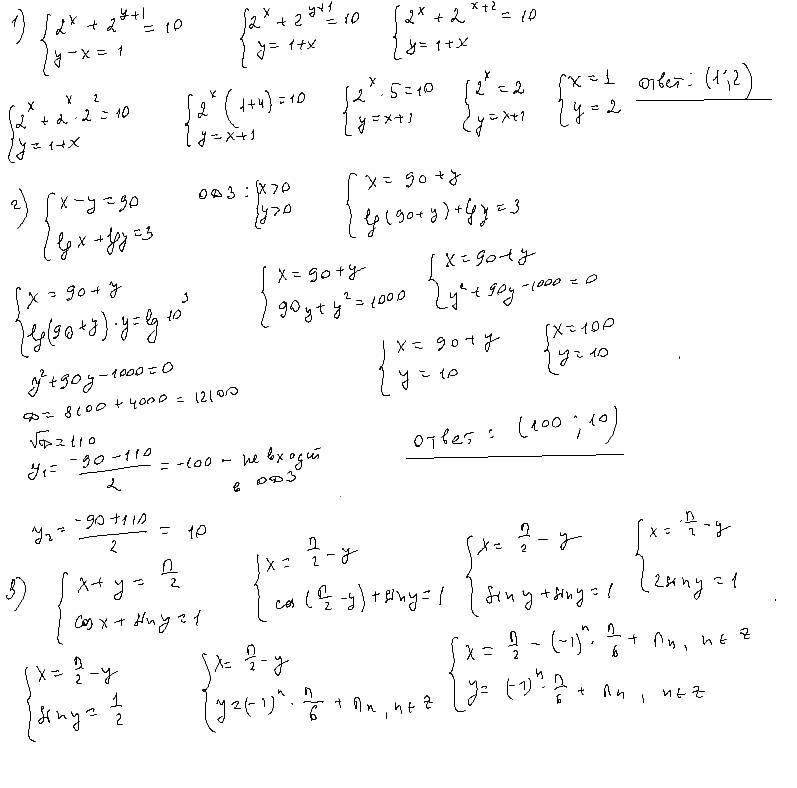 1) { 2^x + 2^(y+1) = 10 ; y - x = 1    { 2^x + 2^(y+1) = 10 ; y = 1+x    { 2^x + 2^(x+2) = 10 ; y = 1+x
{ 2^x + 2^x · 2^2 = 10 ; y = 1+x    { 2^x (1+4) = 10 ; y = x+1    { 2^x · 5 = 10 ; y = x+1    { 2^x = 2 ; y = x+1    { x = 1 ; y = 2    Ответ: (1; 2)
2) { x - y = 90 ; lg x + lg y = 3    ОДЗ: { x > 0 ; y > 0    { x = 90 + y ; lg(90+y) + lg y = 3
{ x = 90 + y ; lg(90+y)·y = lg 10^3    { x = 90 + y ; 90y + y^2 = 1000    { x = 90 + y ; y^2 + 90y - 1000 = 0
y^2 + 90y - 1000 = 0    { x = 90 + y ; y = 10    { x = 100 ; y = 10
D = 8100 + 4000 = 12100
√D = 110    Ответ: (100; 10)
y₁ = (-90 - 110)/2 = -100 - не входит
в ОДЗ
y₂ = (-90 + 110)/2 = 10
3) { x + y = π/2 ; cos x + sin y = 1    { x = π/2 - y ; cos(π/2 - y) + sin y = 1    { x = π/2 - y ; sin y + sin y = 1    { x = π/2 - y ; 2 sin y = 1
{ x = π/2 - y ; sin y = 1/2    { x = π/2 - y ; y = (-1)^n · π/6 + πn, n ∈ Z    { x = π/2 - (-1)^n · π/6 + πn, n ∈ Z ; y = (-1)^n · π/6 + πn, n ∈ Z